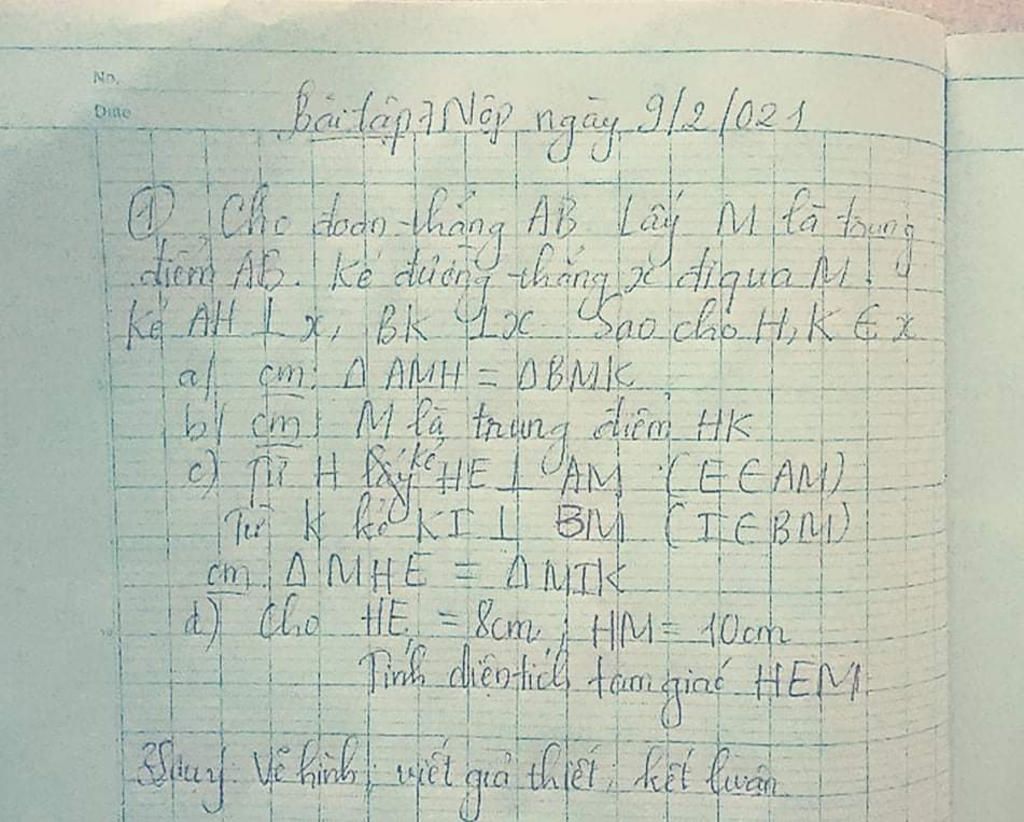 No.
Date
Bài tập 7 Nộp ngày 9/2/021
① Cho đoạn thẳng AB Lấy M là trung
điểm AB. Kẻ đường thẳng x đi qua M.
Kẻ AH ⊥ x, BK ⊥ x Sao cho H, K ∈ x
a/ cm: Δ AMH = Δ BMK
b/ cm: M là trung điểm HK
c) Từ H kẻ HE ⊥ AM (E ∈ AM)
Từ K kẻ KI ⊥ BM (I ∈ BM)
cm. Δ MHE = Δ MIK
d) Cho HE = 8cm; HM = 10cm
Tính diện tích tam giác HEM.
Vẽ hình, viết giả thiết, kết luận